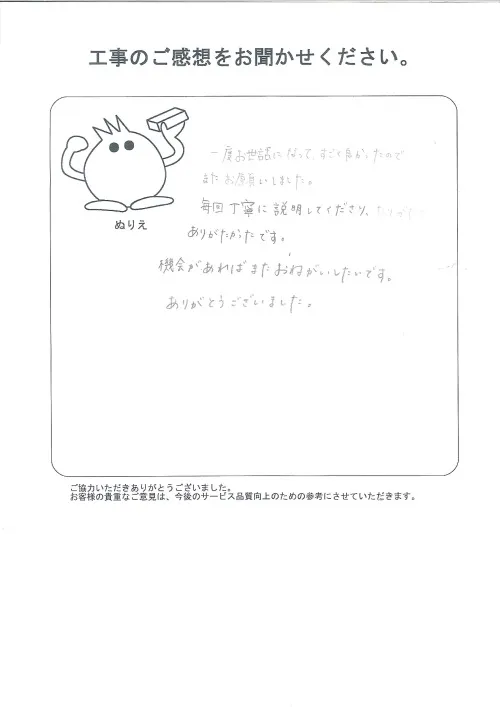 工事のご感想をお聞かせください。
一度お世話になって、すごく良かったので
またお願いしました。
毎回丁寧に説明してくださり、
ありがたかったです。
機会があればまたおねがいしたいです。
ありがとうございました。
ぬりえ
ご協力いただきありがとうございました。
お客様の貴重なご意見は、今後のサービス品質向上のための参考にさせていただきます。